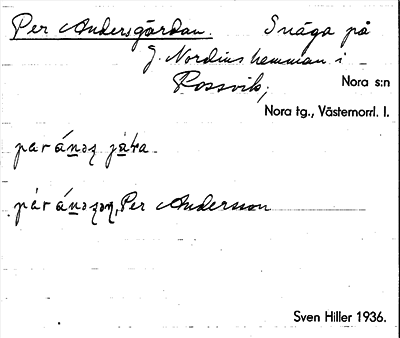 Per Andersgårdan. Snåga på
J. Nordins hemman i
Rossvik, Nora s:n
Nora tg., Västernorrl. l.
Per Andersson
Sven Hiller 1936.